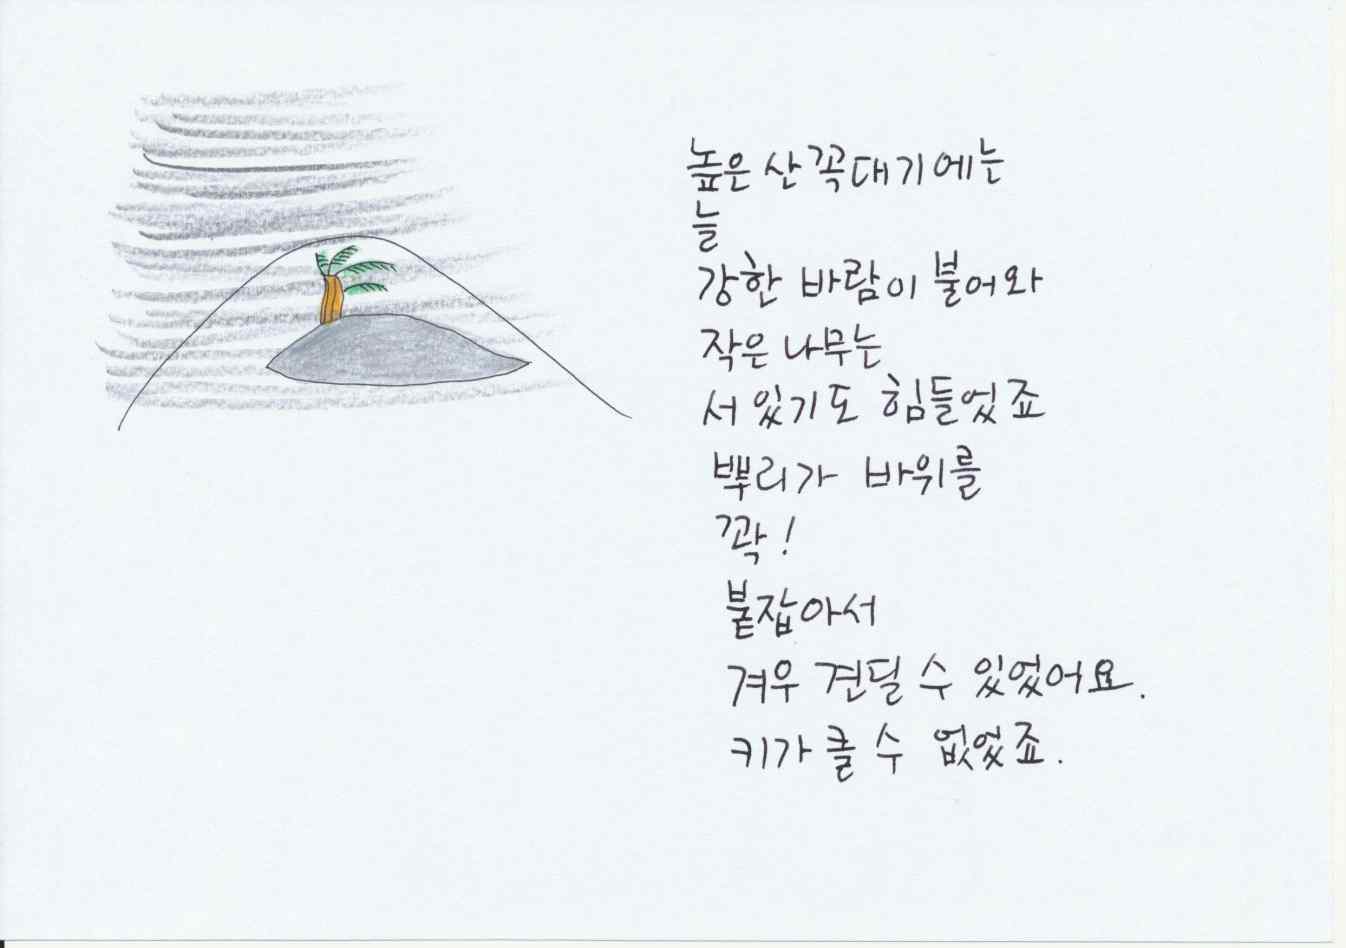 높은 산꼭대기에는
늘
강한 바람이 불어와
작은 나무는
서 있기도 힘들었죠
뿌리가 바위를
꽉!
붙잡아서
겨우 견딜 수 있었어요.
키가 클 수 없었죠.